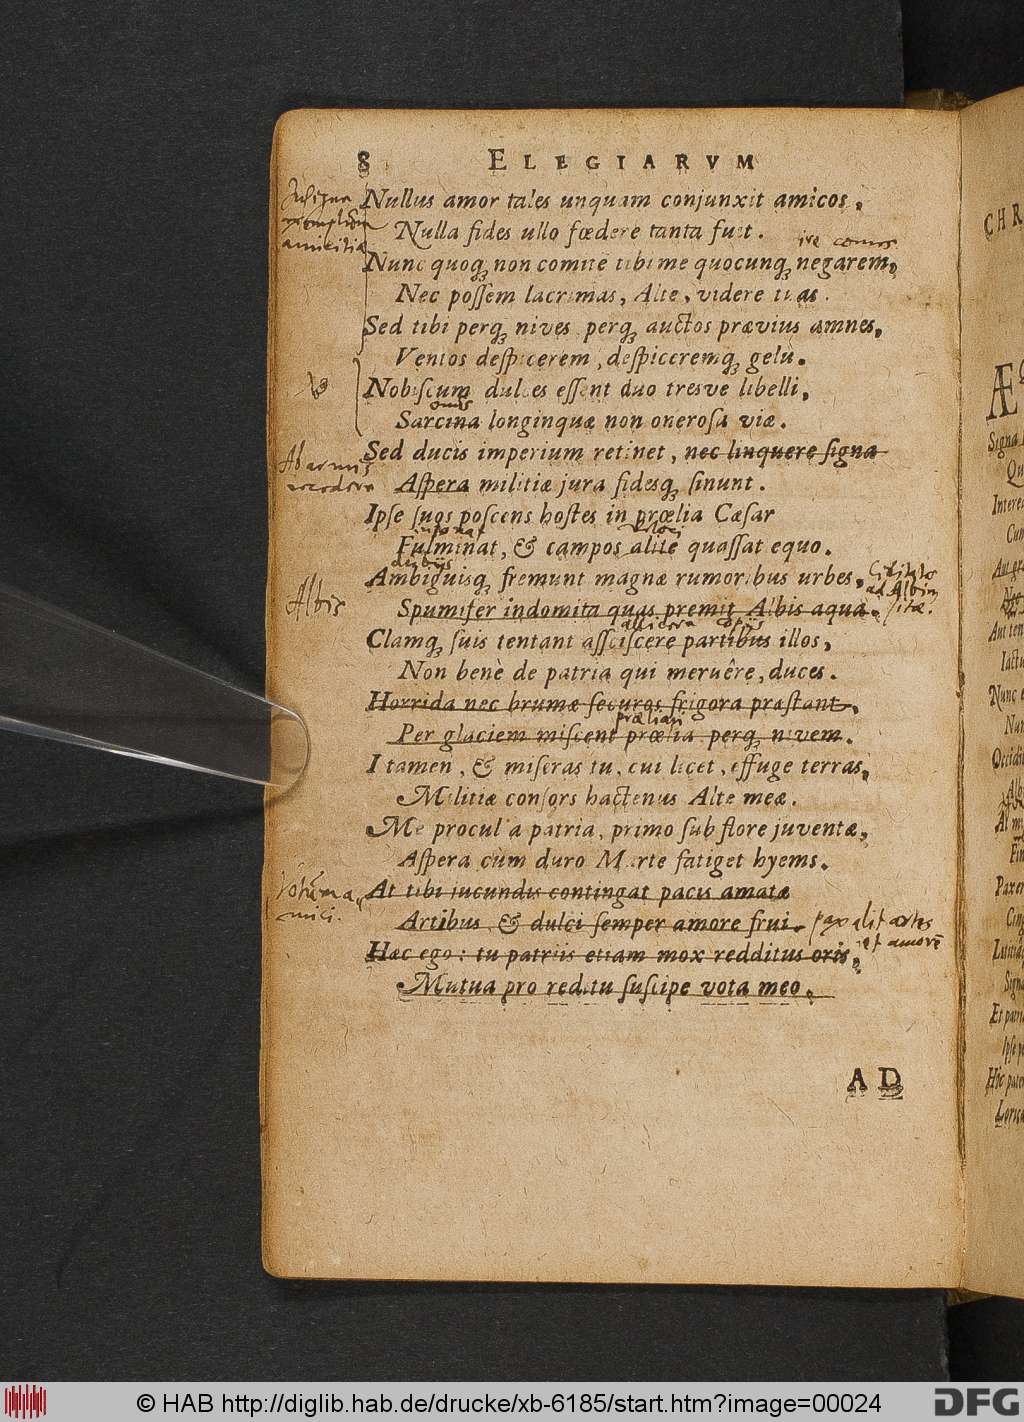 8 ELEGIARVM
Nullus amor tales unquam conjunxit amicos,
Nulla fides ullo fœdere tanta fuit.
ire comes
Nunc quoq; non comitē tibi me quocunq; negarem,
Nec possem lacrimas, Alte, videre tuas.
Sed tibi perq; nives perq; auctos prævius amnes,
Ventos despicerem, despiceremq; gelu.
Nobiscum dulces essent duo tresve libelli,
onus
Sarcina longinquæ non onerosa viæ.
Sed ducis imperium retinet, nec linquere signa
Ab armis
Aspera militiæ jura fidesq; sinunt.
Ipse suos poscens hostes in prœlia Cæsar
intonat
Fulminat, & campos alite quassat equo.
dubijs
Ambiguisq; fremunt magnæ rumoribus urbes,
Albis
ad Albim
sitæ.
Spumifer indomita quas premit Albis aqua.
allicere
Clamq; suis tentant assciscere partibus illos,
Non benè de patria qui meruêre, duces.
Horrida nec brumæ securos frigora præstant,
prælian
Per glaciem miscent prœlia perq; nivem.
I tamen, & miseras tu, cui licet, effuge terras,
Militiæ consors hactenus Alte meæ.
Me procul a patria, primo sub flore juventæ,
Aspera cùm duro Marte fatiget hyems.
At tibi jucundis contingat pacis amatæ
amici.
Artibus, & dulci semper amore frui.
pax alit artes
et amorē
Hæc ego: tu patriis etiam mox redditus oris,
Mutua pro reditu suscipe vota meo.
AD
© HAB http://diglib.hab.de/drucke/xb-6185/start.htm?image=00024
DFG